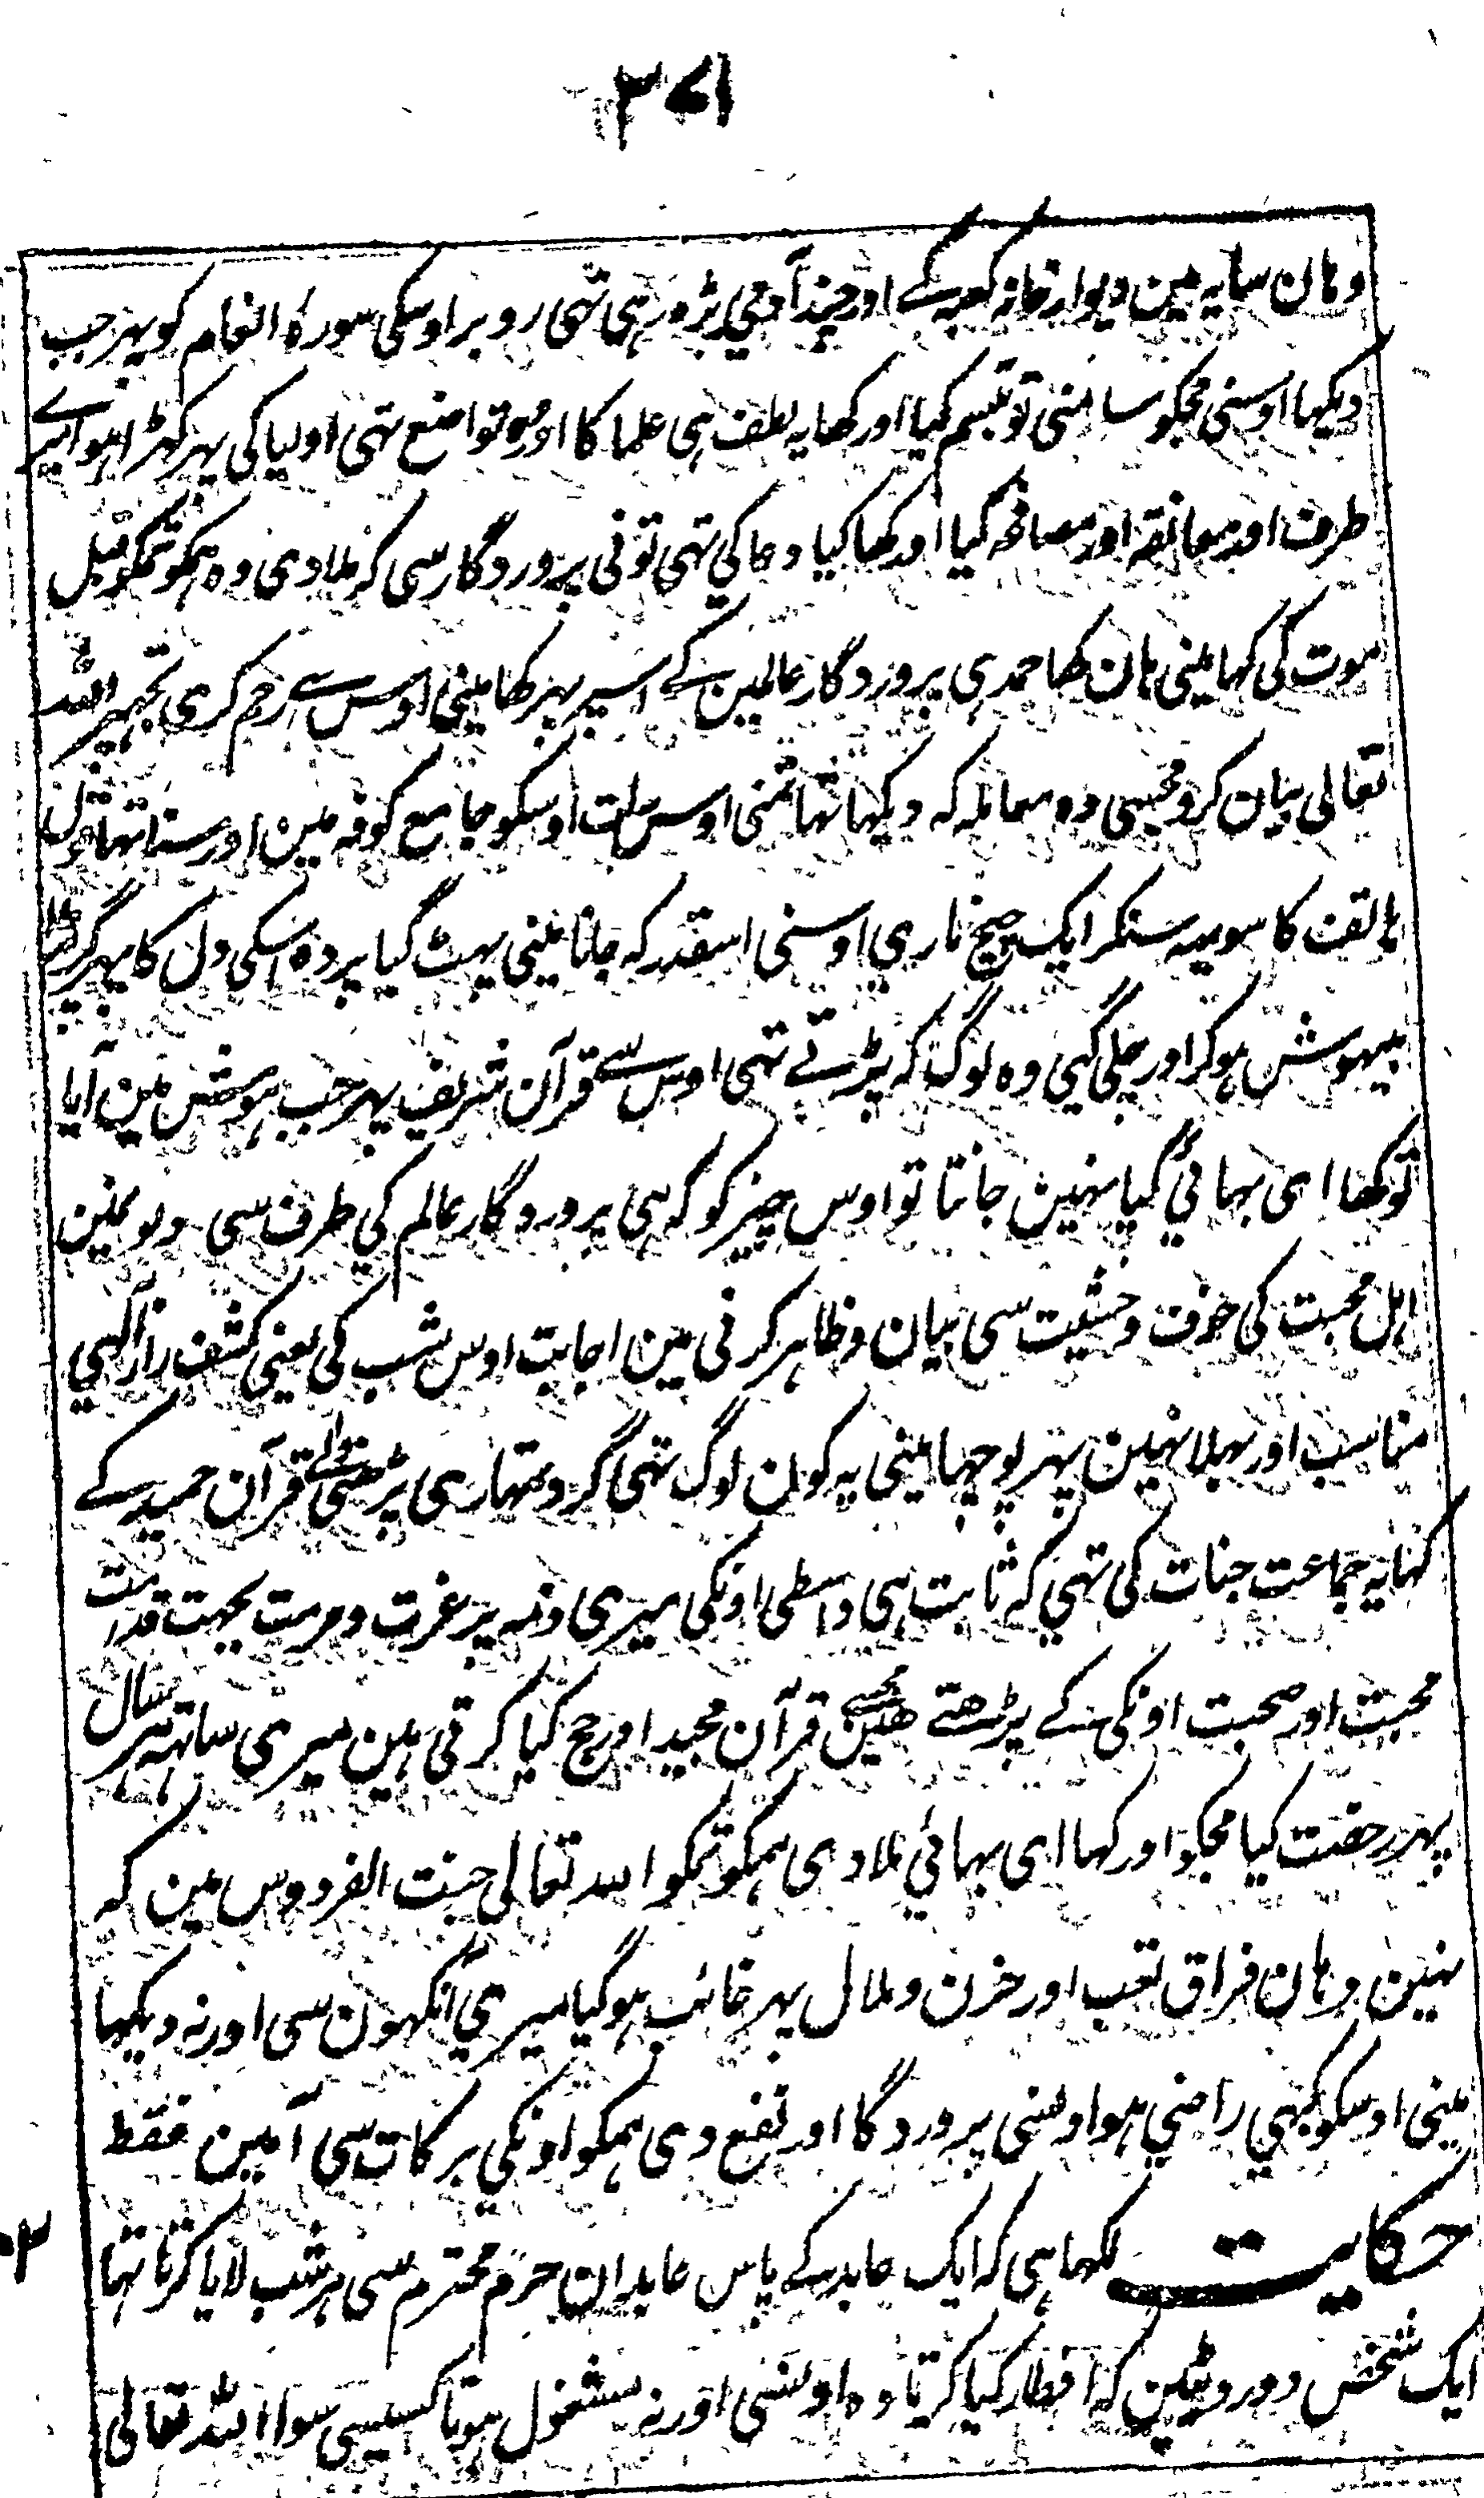 ۳۷۱
وہان سایہ مین دیوار خانہ کعبہ کے اور چند آدمي پڑہ رہی تہی روبرا وسکی سورۂ انعام کو پہر جب
دیکہا اوسنی مجکو سامنی تو تبسم کیا اور کہا یہ لطف ہی علما کا اور وہ تواضع تہی اولیا کی پہر کہڑا ہوا میرے
طرف اور معانقہ اور مصافحہ کیا اور کہا کیا دعا کي تہی تونی پروردگار سی کہ ملا دی وہ ہمکو تمکو قبل
موت کی کہا مینی ہان کہا حمد ہی پروردگار عالمین کے اسپر پہر کہا مینی اوس سے رحم کری تجہپر اللہ
تعالی بیان کرو مجہسی وہ معاملہ کہ دیکہا تہا تمنی اوس رات اوسکو جامع کوفہ مین اور سنا تہا قول
ہاتف کا سو یہہ سنکر ایک چیخ ماري اوسنی اسقدر کہ جانا مینی پہٹ گیا پردہ اسکی دل کا پہر گر پڑا
بیہوش ہوکر اور چلی گیی وہ لوگ کہ پڑہتے تہی اوس سے قرآن شریف پہر جب ہوش مین آیا
تو کہا ای بہائي کیا نہین جانتا تو اوس چیز کو کہ ہی پروردگار عالم کي طرف سی دلو نمین
اہل محبت کی خوف وخشیت سی بیان وظاہر کرنی مین اجابت اوس شب کی یعنی کشف راز الہي
مناسب اور بہلا نہین پہر پوچہا مینی یہ کون لوگ تہی گرد تمہاری پڑھنی والے قرآن حمید کے
کہا یہ جماعت جنات کی تہي کہ ثابت ہی واسطی اونکی میری ذمہ پر عزت وحرمت بجہت قدامت
محبت اور صحبت اونکی کے پڑھتے ھین مجھسے قرآن مجید اور حج کیا کرتی ہین میری ساتہہ ہر سال
پہر رخصت کیا مجکو اور کہا ای بہائي ملادی ہمکو تمکو اللہ تعالی جنت الفردوس مین کہ
نہین وہان فراق تعب اور حزن وملال پہر غائب ہوگیا میري آنکہون سی اور نہ دیکہا
مینی اوسکو کبہي راضي ہوا وسنی پروردگا اور نفع دی ہمکو اونکي برکات سی آمین فقط
حکایت لکہا ہی کہ ایک عابد کے پاس عابدان حرم محترم سی ہر شب لایا کرتا تہا
ایک شخص دو روٹیین کہ افطار کیا کرتا وہ اونسی اور نہ مشغول ہوتا کسیسی سوا اللہ تعالی